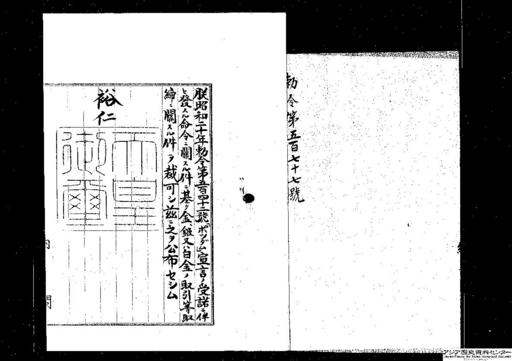 勅令第五百七十七號
朕昭和二十年勅令第五百四十二號ポツダム宣言ノ受諾ニ伴
ヒ發スル命令ニ關スル件ニ基ク金、銀又ハ白金ノ取引等取
締ニ關スル件ヲ裁可シ茲ニ之ヲ公布セシム
裕仁
天皇御璽
内閣
アジア歴史資料センター